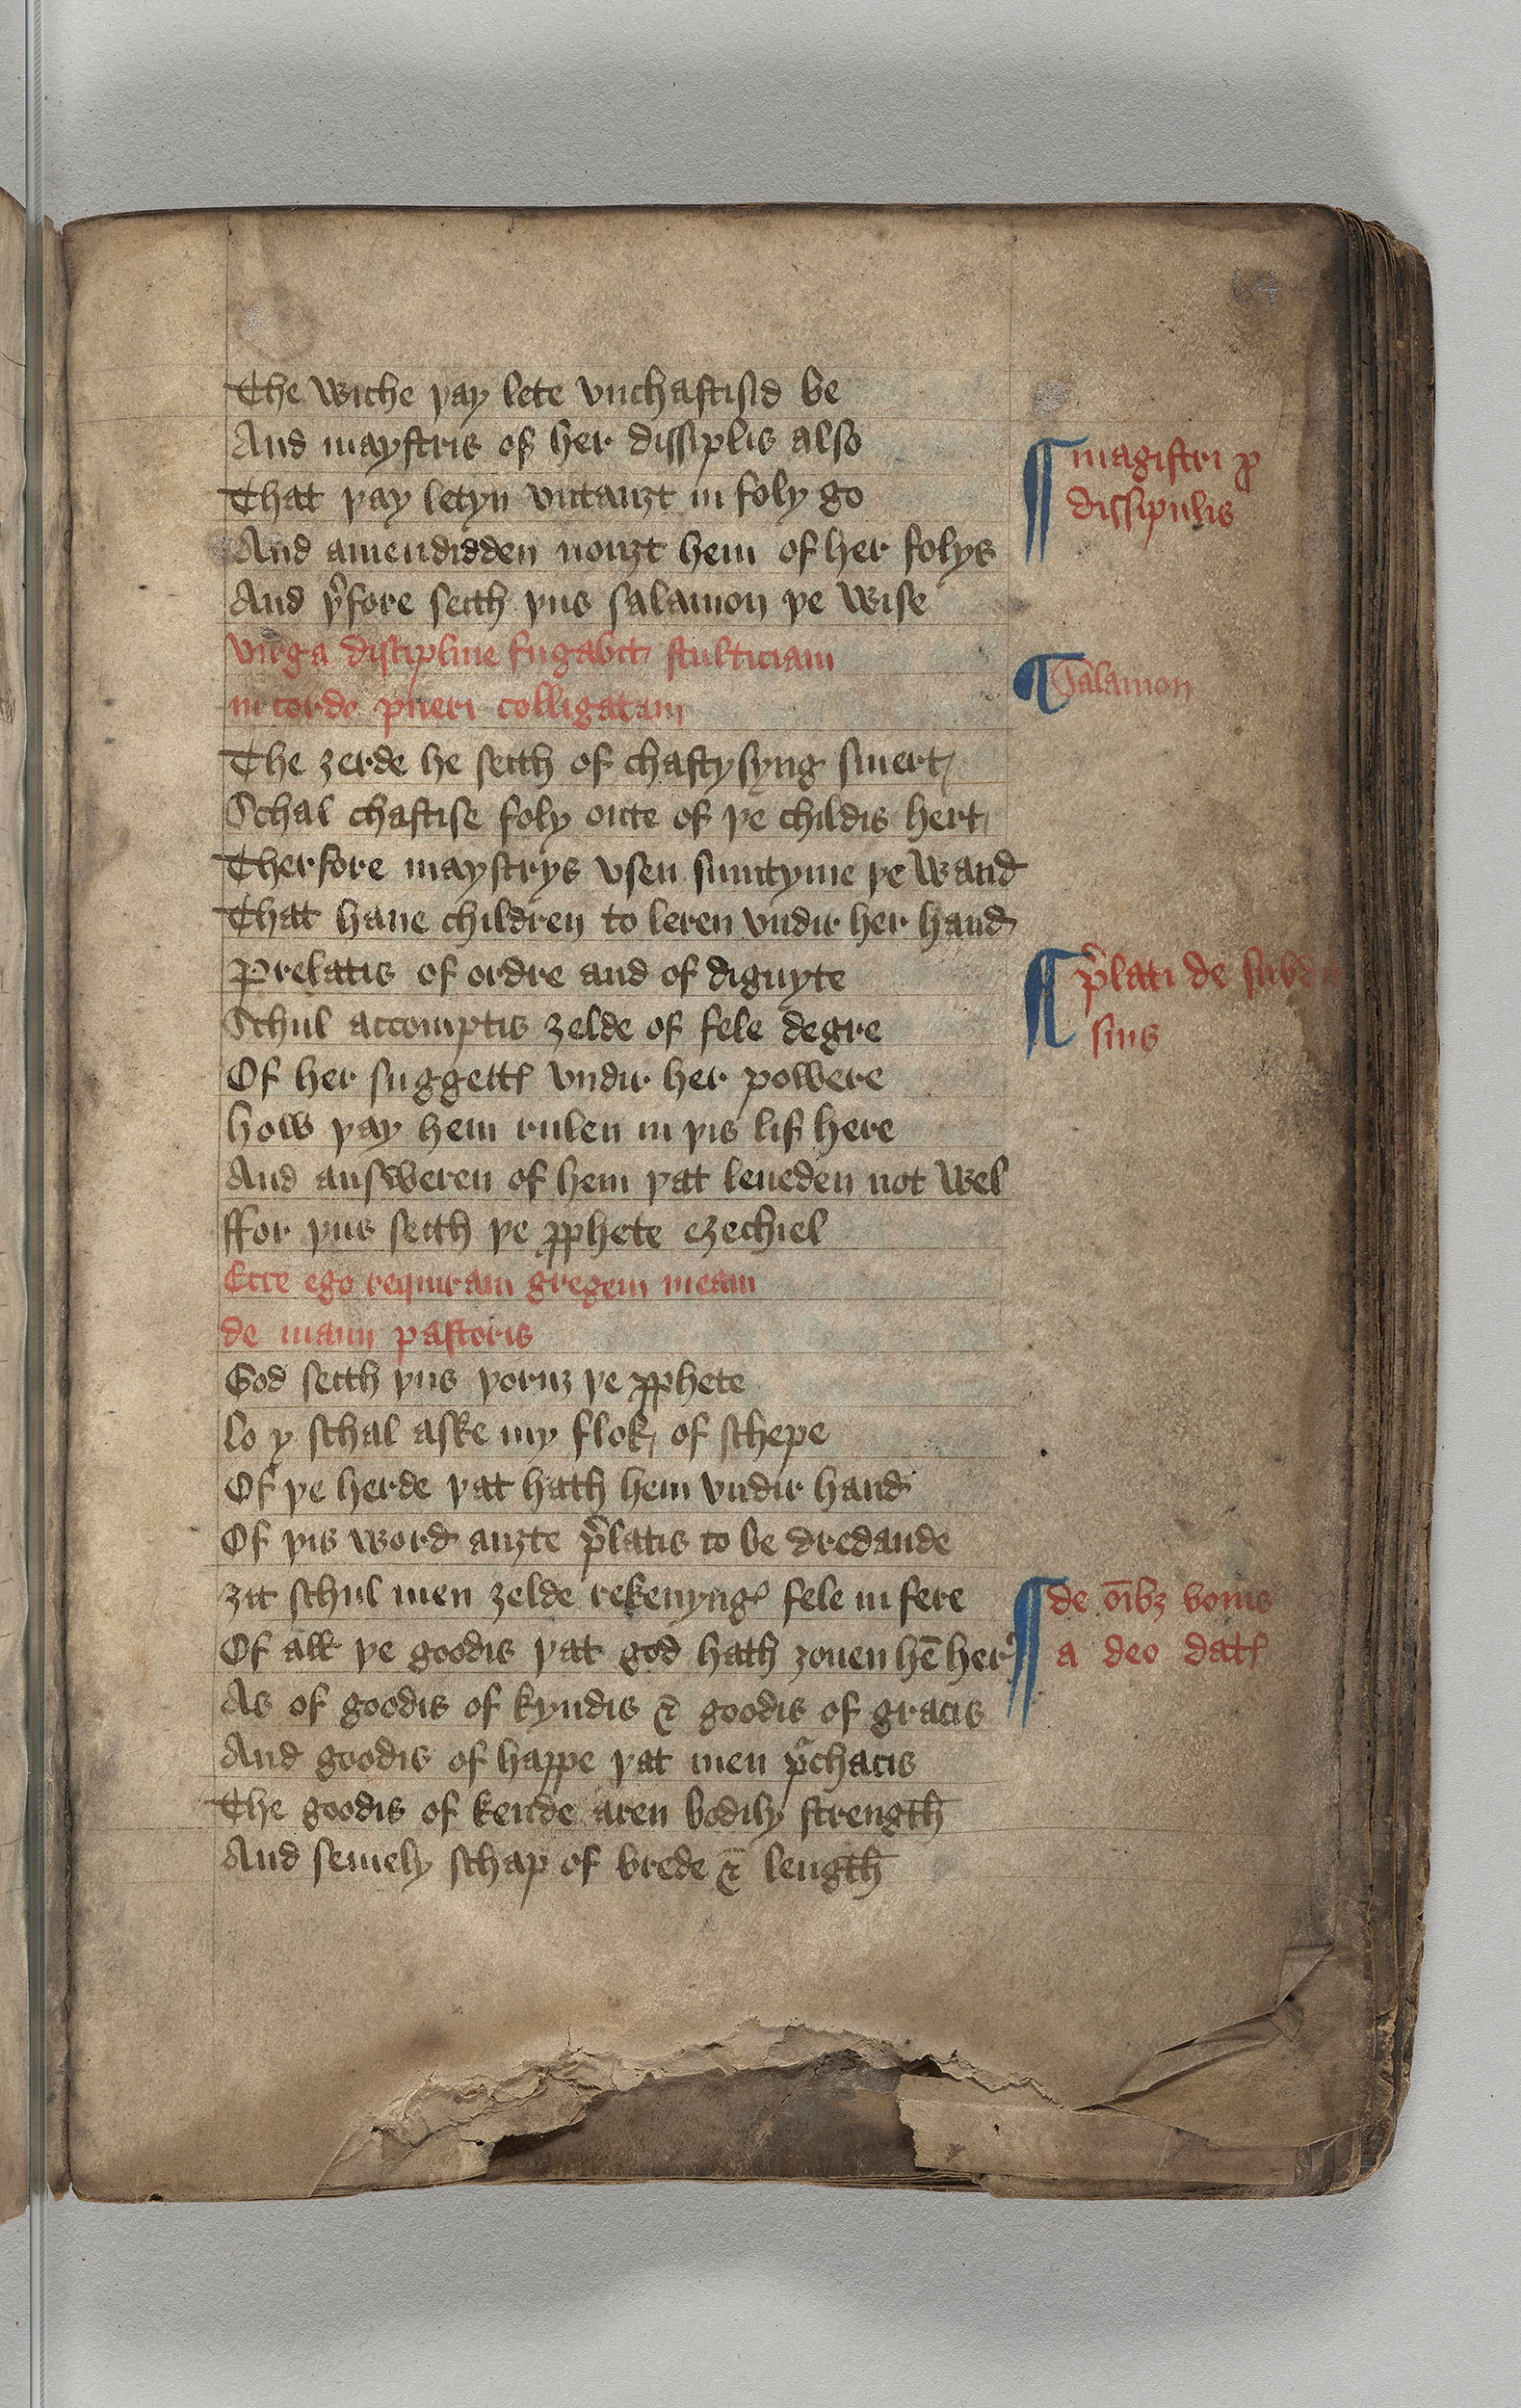 64
The wiche þay lete vnchastisid be
And maystris of her dissiplis also
magistri ꝓ
That þay letyn vntauȝt in foly go
dissipulis
And amendidden nouȝt hem of her folys
And þ̉fore seith þus salamon þe wise
virga discipline fugabit stulticiam
Salamon
in corde pueri colligatam
The ȝerde he seith of chastysyng smert
Schal chastise foly oute of þe childis hert
Therfore maystrys vsen sumtyme þe wand
That haue children to leren vndir her hand
Prelatis of ordre and of dignyte
p̉lati de
Schul accomptis ȝelde of fele degre
Of her suggettꝭ vndir her powere
how þay hem rulen in þis lif here
And answeren of hem þat leueden not wel
ffor þus seith þe ꝓphete eȝechiel
Ecce ego requiram gregem meam
de manu pastoris
God seith þus þoruȝ þe ꝓphete
lo y schal aske my flok of schepe
Of þe herde þat hath hem vndir hand
Of þis word auȝte p̉latis to be dredande
ȝit schul men ȝelde rekenyngꝭ fele in fere
de oībȝ bonis
Of all þe goodis þat god hath ȝouen hē her̉
a deo datꝭ
As of goodis of kyndis & goodis of gracis
And goodis of happe þat men p̉chacis
The goodis of kende aren bodily strength
And semely schap of brede & length